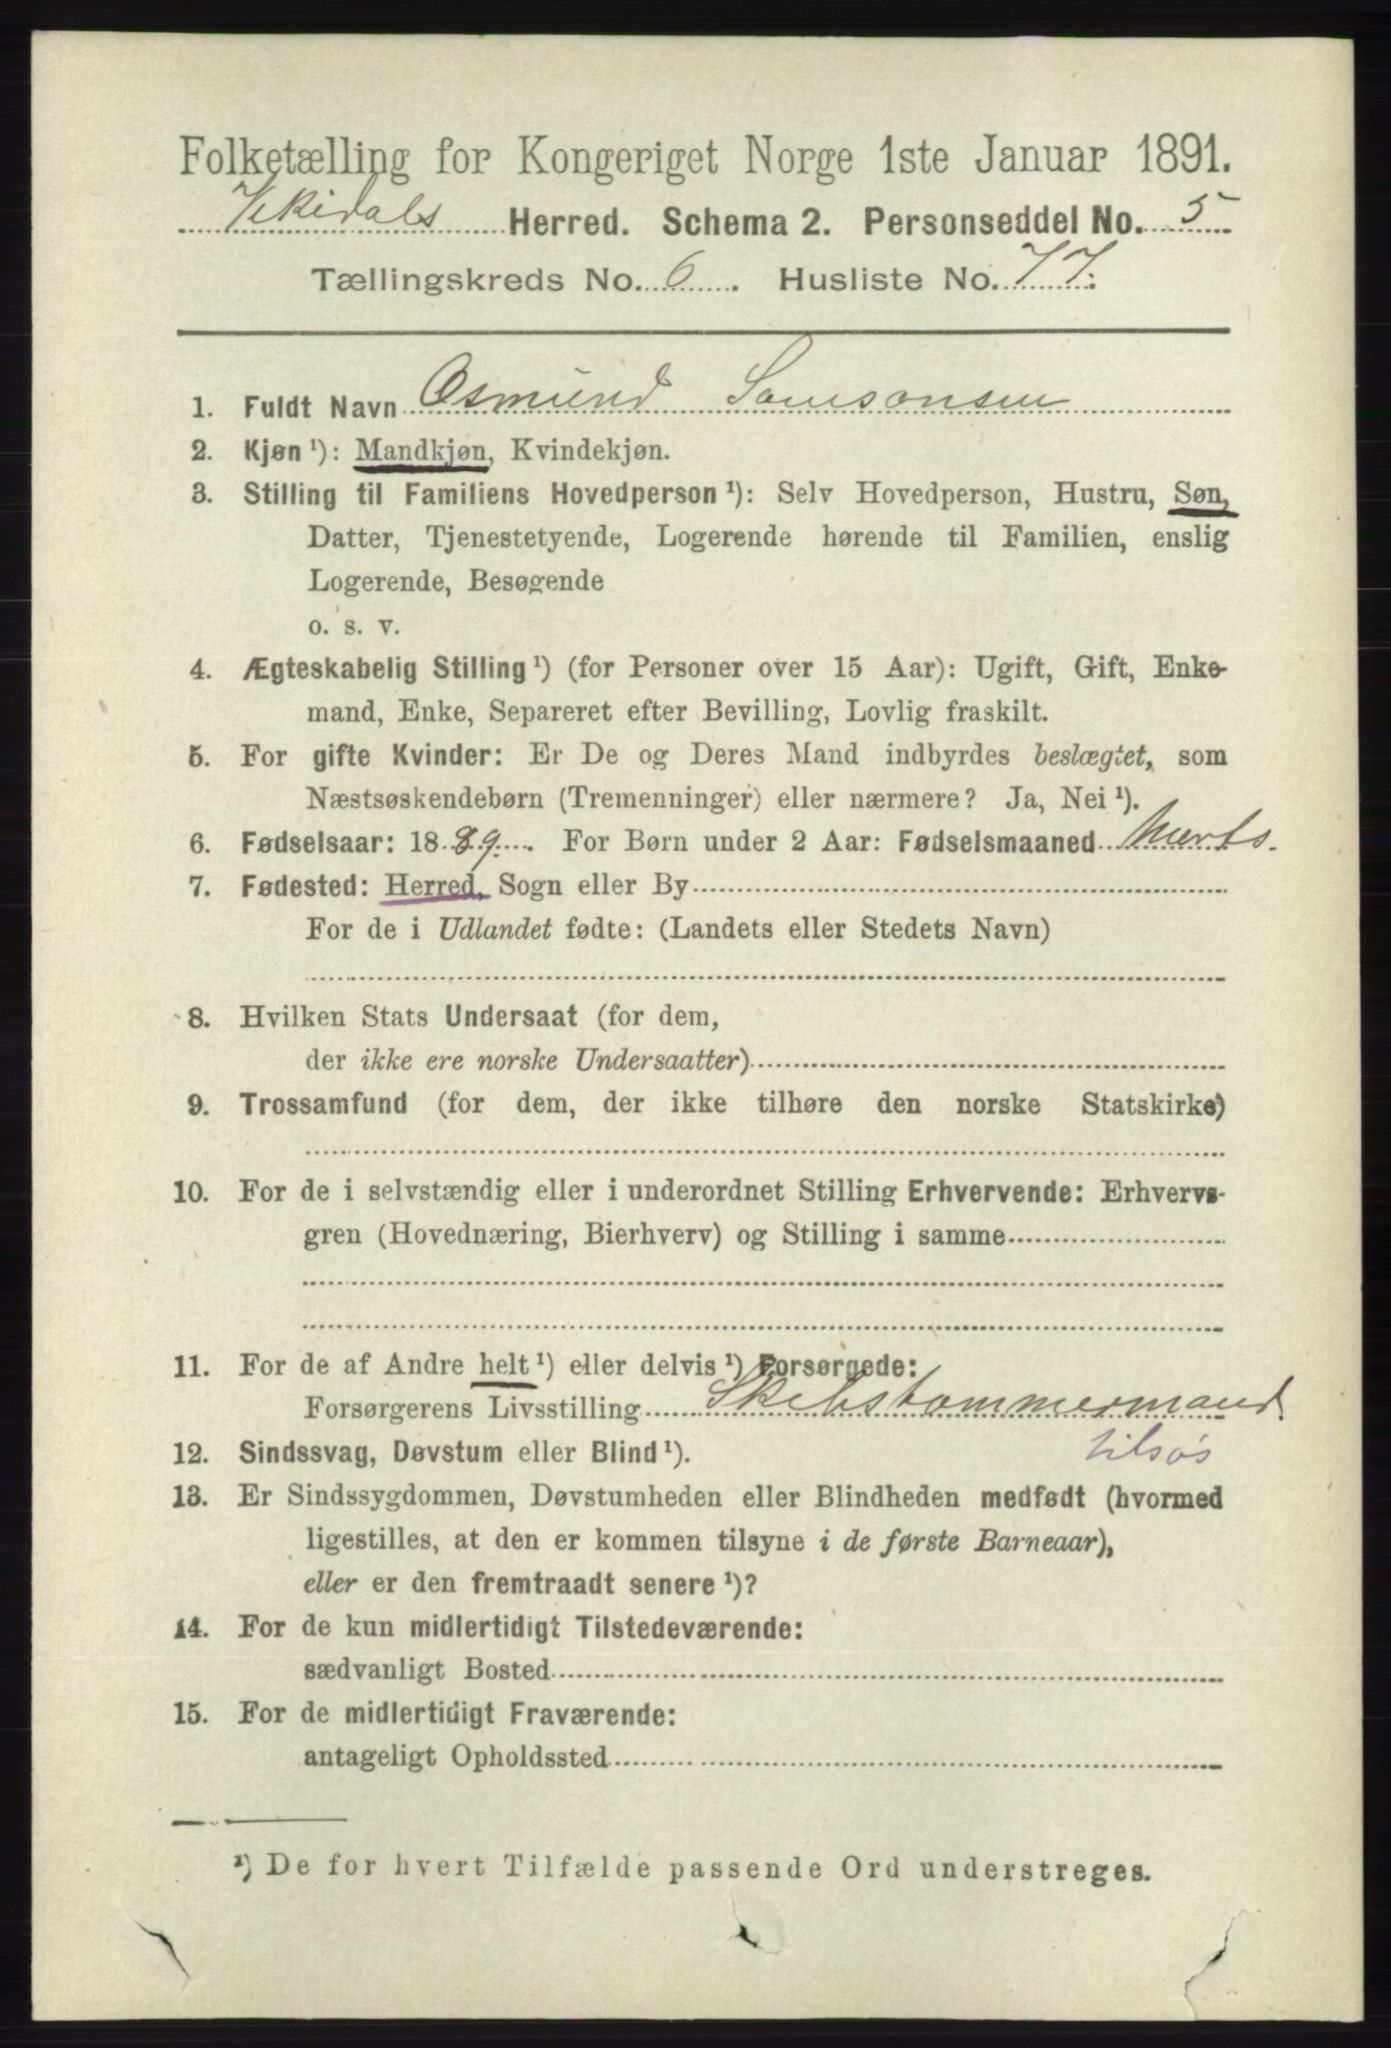 Folketælling for Kongeriget Norge 1ste Januar 1891.
Vikedals Herred. Schema 2. Personseddel No. 5
Tællingskreds No. 6. Husliste No. 77.
1. Fuldt Navn Osmund Samsonsen
2. Kjøn ¹): Mandkjøn, Kvindekjøn.
3. Stilling til Familiens Hovedperson ¹): Selv Hovedperson, Hustru, Søn,
Datter, Tjenestetyende, Logerende hørende til Familien, enslig
Logerende, Besøgende
o. s. v.
4. Ægteskabelig Stilling ¹) (for Personer over 15 Aar): Ugift, Gift, Enke-
mand, Enke, Separeret efter Bevilling, Lovlig fraskilt.
5. For gifte Kvinder: Er De og Deres Mand indbyrdes beslægtet, som
Næstsøskendebørn (Tremenninger) eller nærmere? Ja, Nei ¹).
6. Fødselsaar: 1889. For Børn under 2 Aar: Fødselsmaaned Marts.
7. Fødested: Herred, Sogn eller By
For de i Udlandet fødte: (Landets eller Stedets Navn)
8. Hvilken Stats Undersaat (for dem,
der ikke ere norske Undersaatter)
9. Trossamfund (for dem, der ikke tilhøre den norske Statskirke)
10. For de i selvstændig eller i underordnet Stilling Erhvervende: Erhvervs-
gren (Hovednæring, Bierhverv) og Stilling i samme
11. For de af Andre helt ¹) eller delvis ¹) Forsørgede:
Forsørgerens Livsstilling Skibstømmermand
tilsøs
12. Sindssvag, Døvstum eller Blind ¹).
13. Er Sindssygdommen, Døvstumheden eller Blindheden medfødt (hvormed
ligestilles, at den er kommen tilsyne i de første Barneaar),
eller er den fremtraadt senere ¹)?
14. For de kun midlertidigt Tilstedeværende:
sædvanligt Bosted
15. For de midlertidigt Fraværende:
antageligt Opholdssted
¹) De for hvert Tilfælde passende Ord understreges.